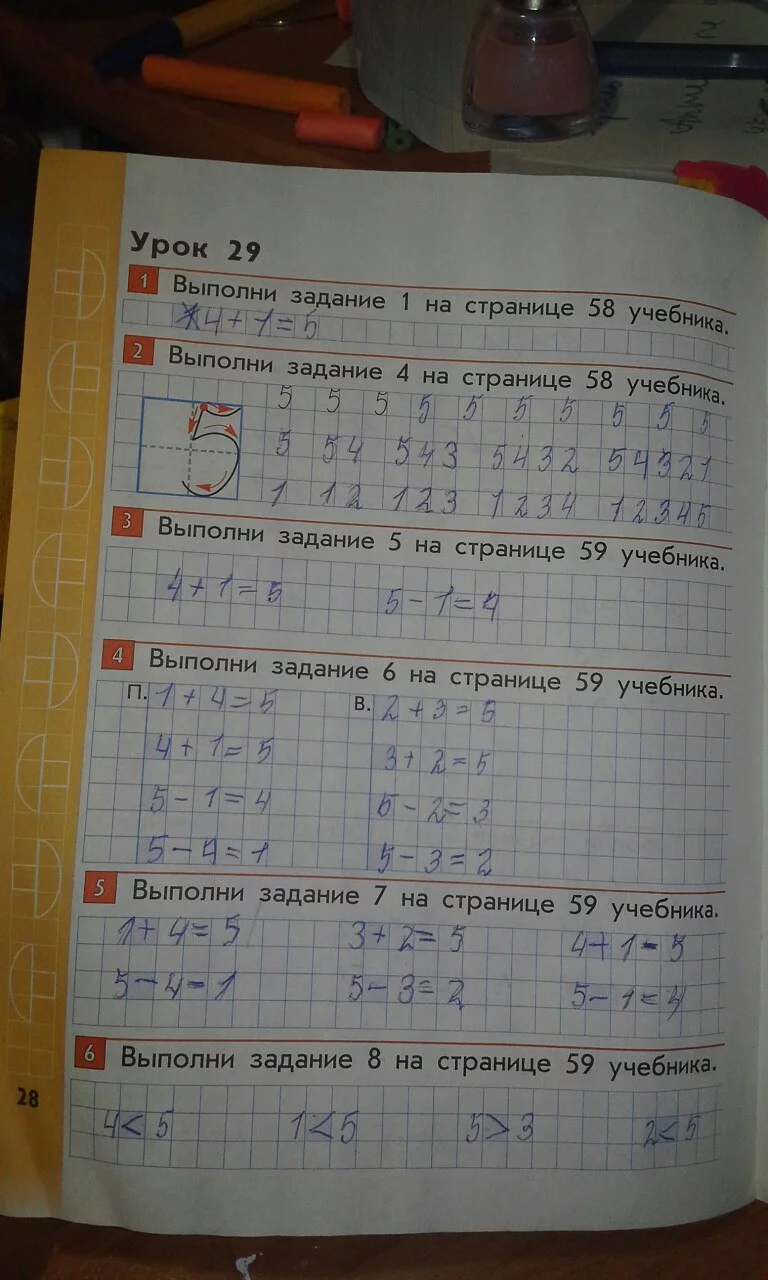 Урок 29
1 Выполни задание 1 на странице 58 учебника.
4+1=5
2 Выполни задание 4 на странице 58 учебника.
5 5 5 5 5 5 5 5 5 5 5
5 54 543 5432 54321
1 12 123 1234 12345
3 Выполни задание 5 на странице 59 учебника.
4+1=5 5-1=4
4 Выполни задание 6 на странице 59 учебника.
П. 1+4=5 В. 2+3=5
4+1=5 3+2=5
5-1=4 5-2=3
5-4=1 5-3=2
5 Выполни задание 7 на странице 59 учебника.
1+4=5 3+2=5 4+1=5
5-4=1 5-3=2 5-1=4
6 Выполни задание 8 на странице 59 учебника.
28
4<5 1<5 5>3 2<5